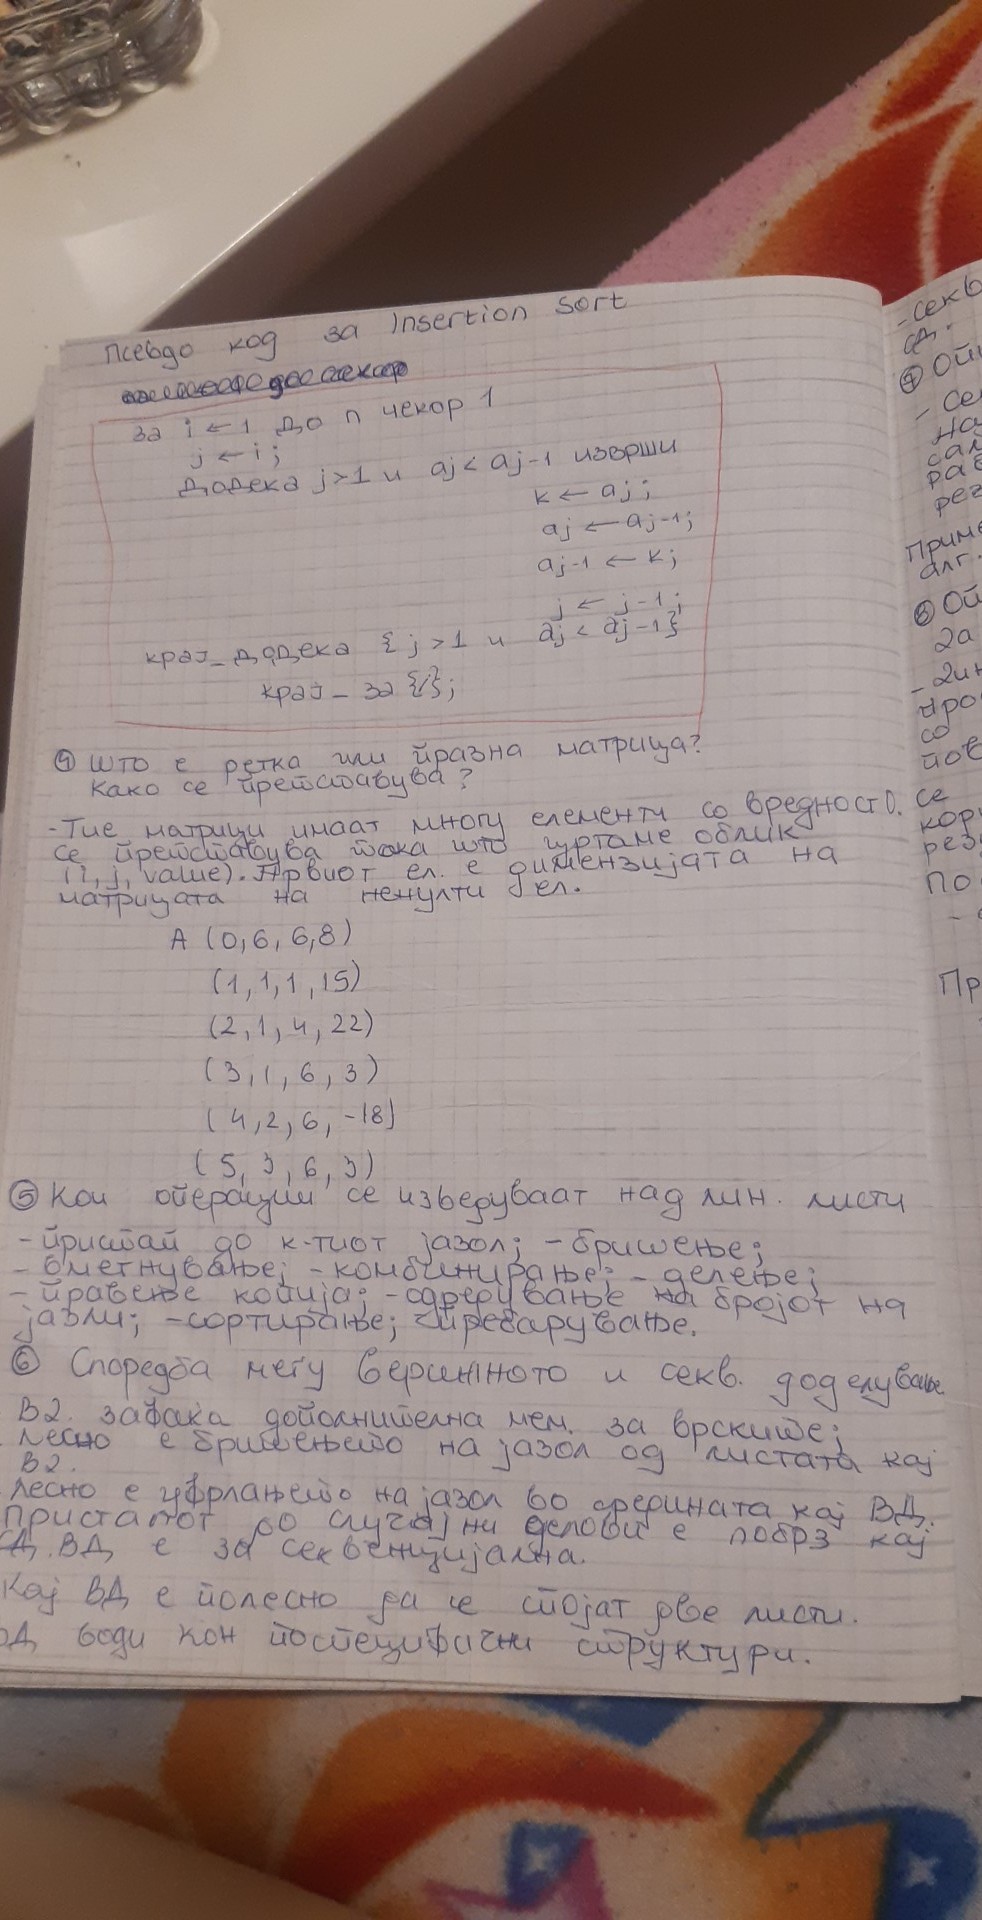 Псевдо код за Insertion Sort
за i ← 1 до n чекор 1
j ← i;
додека j>1 и aj < aj-1 изврши
k ← aj;
aj ← aj-1;
aj-1 ← k;
j ← j-1;
крај_додека {j>1 и aj < aj-1}
крај_за {i};
④ Што е ретка или празна матрица?
Како се претставува?
-Тие матрици имаат многу елементи со вредност 0.
се претставува така што цртаме облик
(i, j, value). Првиот ел. е димензијата на
матрицата на ненулти ел.
A (0,6,6,8)
(1,1,1,15)
(2,1,4,22)
(3,1,6,3)
(4,2,6,-18)
(5,3,6,3)
⑤ Кои операции се изведуваат над лин. листи
-пристап до к-тиот јазол; -бришење;
-вметнување; -комбинирање; -делење;
-правење копија; -одредување на бројот на
јазли; -сортирање; -пребарување.
⑥ Споредба меѓу верижното и секв. доделување
ВД. зафаќа дополнителна мем. за врските;
лесно е бришењето на јазол од листата кај
ВД.
лесно е уфрлањето на јазол во средината кај ВД.
Пристапот до случајни делови е побрз кај
СД. ВД е за секвенцијална.
Кај ВД е полесно да се спојат две листи.
ВД води кон поспецифични структури.
-секв
СД.
⑦ Опи
- се
на